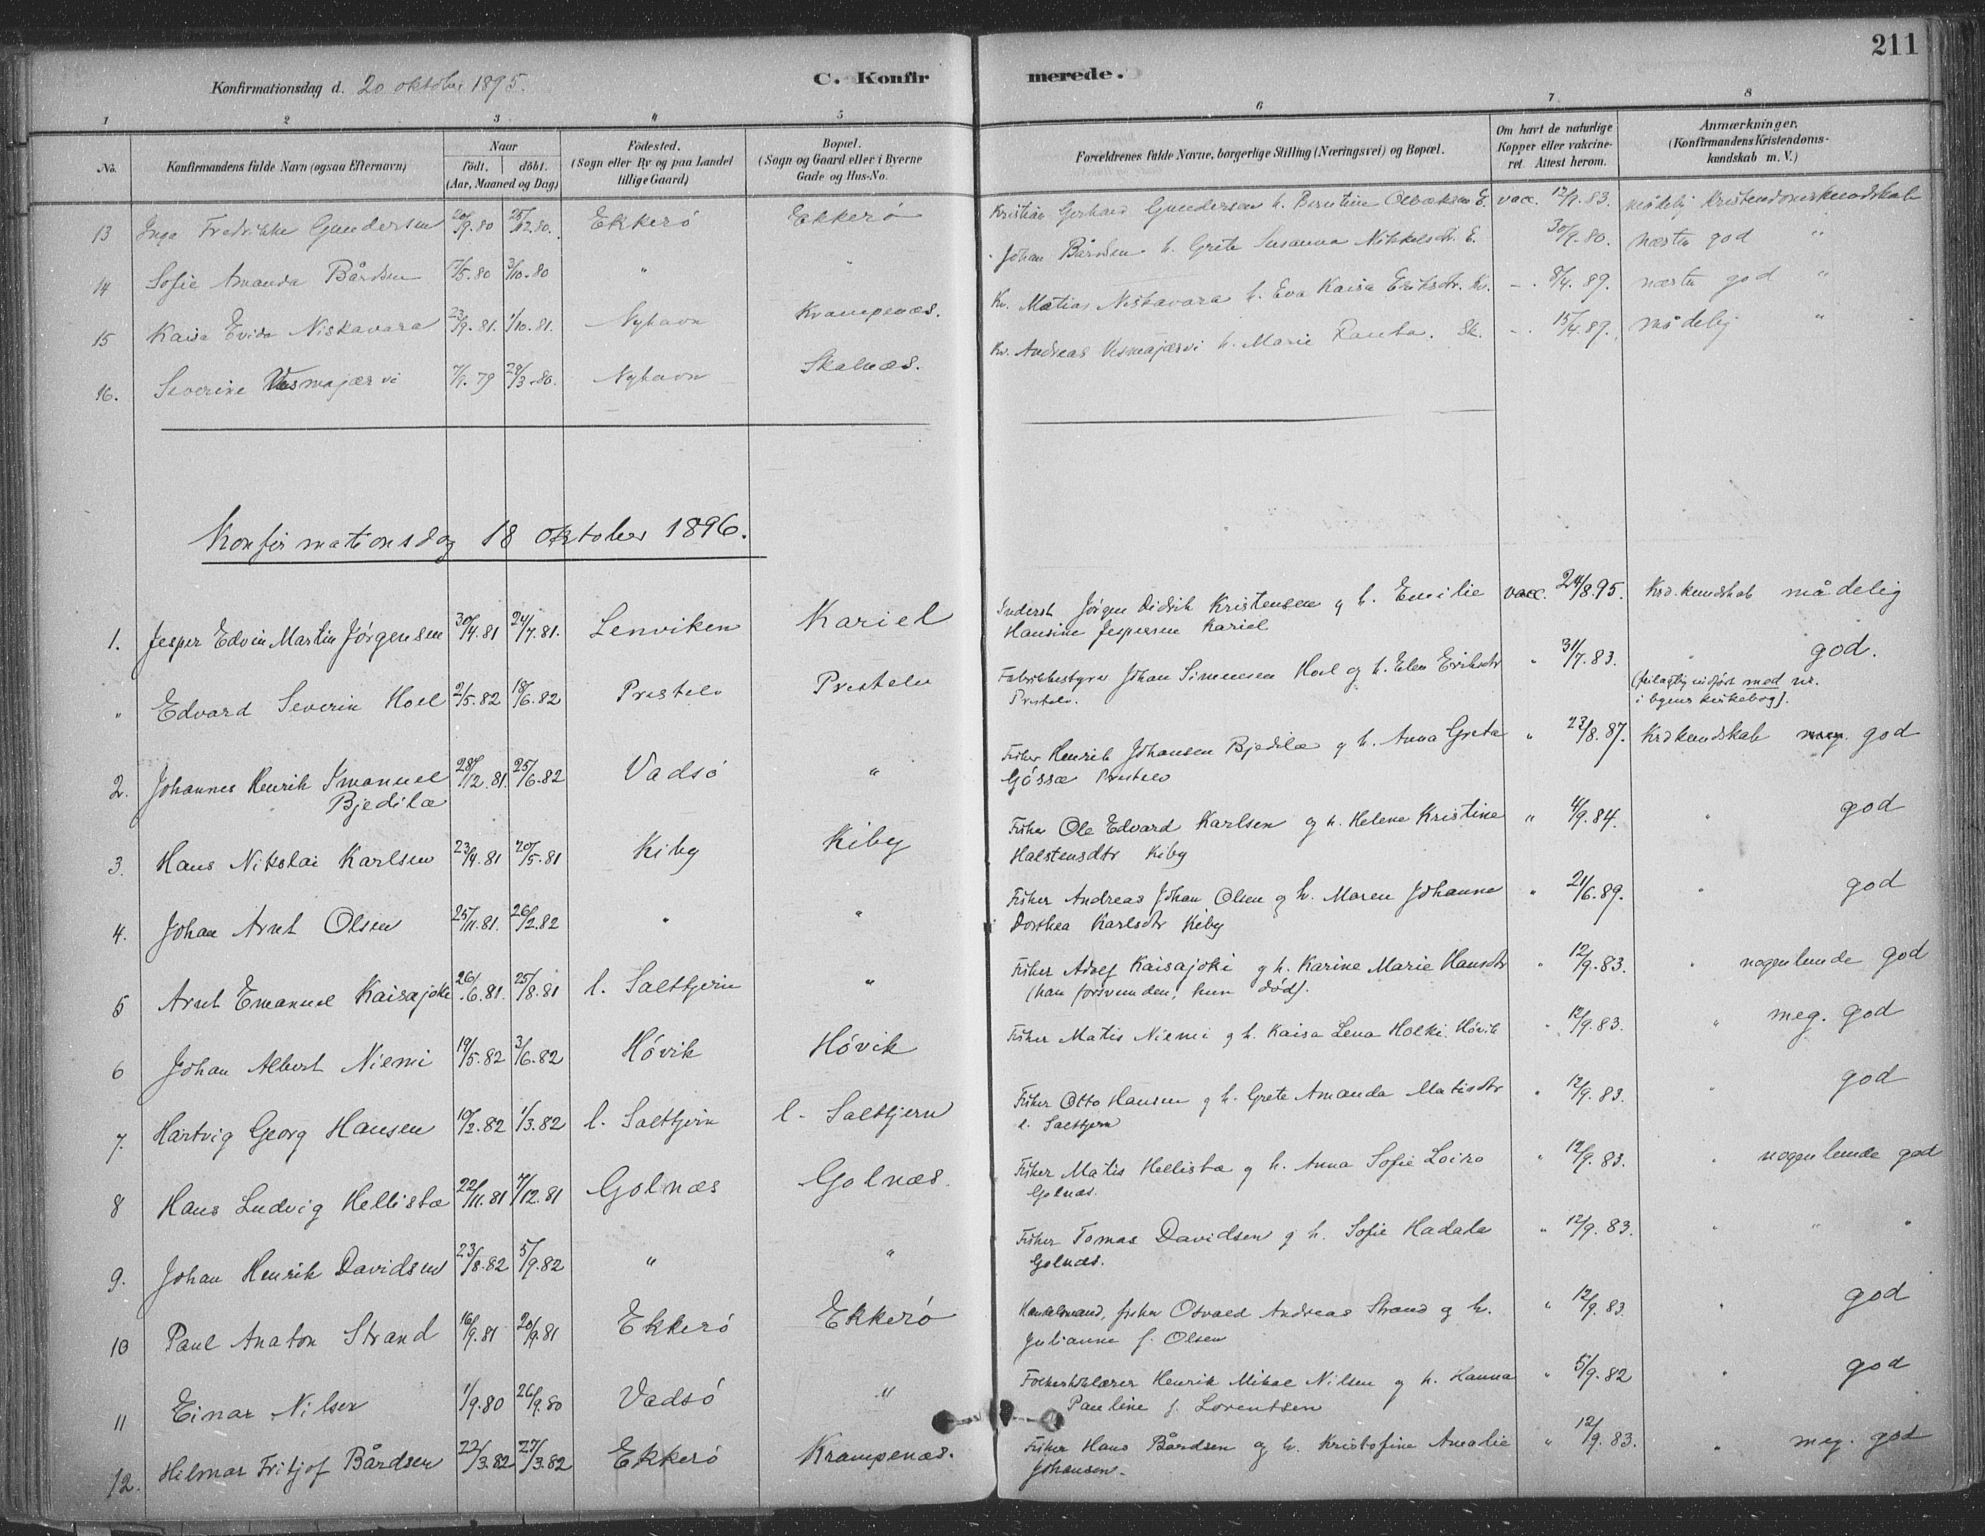 211
Konfirmationsdag d. 20 oktober 1895.
C. Konfirmerede.
1 2 3 4 5 6 7 8
No. Konfirmandens fulde Navn (ogsaa Efternavn) Naar födt. döbt. (Aar, Maaned og Dag) Födested. (Sogn eller By og paa Landet tillige Gaard) Bopæl. (Sogn og Gaard eller i Byerne Gade og Hus-No. Forældrenes fulde Navne, borgerlige Stilling (Næringsvei) og Bopæl. Om havt de naturlige Kopper eller vakcineret. Attest herom. Anmærkninger. (Konfirmandens Kristendomskundskab m. V.)
13 Inga Fredrikke Gundersen 80 80. Ekkerö Ekkerö Kristian Gerhard Gundersen h. Berntine E. vacc. 12/9.83. mådelig Kristendomskundskab
14 Sofie Amanda Bårdsen 7/5.80 3/10.80 " " Johan Bårdsen h. Grete Susanna Nikkelsdr. E. 30/9.80. næsten god "
15 Kaisa Evida Niskavara 23/9.81. 1/10.81. Nyhavn Krampenæs. Kv. Matias Niskavara h. Eva Kaisa Eriksdr. Kr. - 8/4.89. næsten god "
16. Severine Vesmajærvi 79 80. Nyhavn Skalnæs. Kv. Andreas Vesmajærvi h. Marie Ranta. Sk. - 15/4.87. mådelig "
Konfirmationsdag 18 oktober 1896.
1. Jesper Edvin Martin Jørgensen 30/4.81 24/7.81. Lenviken Kariel Inderst Jørgen Didrik Kristensen g h. Emilie vacc. 24/8.95. Krd.kundskab mådelig
Hansine Jespersen Kariel
" Edvard Severin Hoel 2/5.82 18/6.82 Prestelv Prestelv Fabrikbestyrer Johan Simensen Hoel og h. Elen Eriksdtr " 31/7.83. " god.
Prestelv. (feilagtig indført med nr. i byens kirkebog).
2. Johannes Henrik Imanuel Bjedilæ 28/12.81. 25/6.82 Vadsö " Fisker Henrik Johansen Bjedilæ g h. Anna Greta " 23/8.87. Krdkundskab meg. god
Gössæ Prestelv
3. Hans Nikolai Karlsen 23/4.81 20/5.81 Kiby Kiby Fisker Ole Edvard Karlsen og h. Helene Kristine " 4/9.84. " god
Halstensdtr Kiby
4. Johan Arnt Olsen 25/11.81. 26/2.82 " " Fisker Andreas Johan Olsen og h. Maren Johanne " 21/6.89. " god
Dorthea Karlsdtr Kiby
5 Arnt Emanuel Kaisajoki 26/6.81. 25/8.81 l. Saltjern " Fisker Adolf Kaisajoki g h. Karine Marie Hansdtr " 12/9.83. " nogenlunde god
(han forsvunden, hun död).
6 Johan Albert Niemi 19/5.82 3/6.82 Hövik Hövik Fisker Matis Niemi g h. Kaisa Lena Holki Hövik " 12/9.83. " meg. god
7. Hartvig Georg Hansen 10/2.82 1/3.82 l. Saltjern l. Saltjern Fisker Otto Hansen g h. Grete Amanda Matisdtr " 12/9.83. " god
l. Saltjern
8 Hans Ludvig Hellista 22/11.81 7/12.81 Golnæs Golnæs. Fisker Matis Hellista g h. Anna Sofie Loiro " 12/9.83. " nogenlunde god
Golnæs.
9. Johan Henrik Davidsen 23/8.82 5/9.82 " " Fisker Tomas Davidsen g h. Sofie Hadala " 12/9.83. " " "
Golnæs.
10 Paul Anaton Strand 16/9.81 20/9.81 Ekkerö Ekkerö Handelsmand, fisker Osvald Andreas Strand g h. " 12/9.83. " god
Julianne f. Olsen
11 Einar Nilsen 1/9.80 26/9.80 Vadsö " Folkeskolelærer Henrik Mikal Nilsen g h. Hanna " 5/9.82 " god
Pauline f. Lorentsen
12. Hilmar Fritjof Bårdsen 22/3.82 27/3.82 Ekkerö Krampenæs. Fisker Hans Bårdsen og h. Kristofine Amalie " 12/9.83. " meg. god
Johansen.